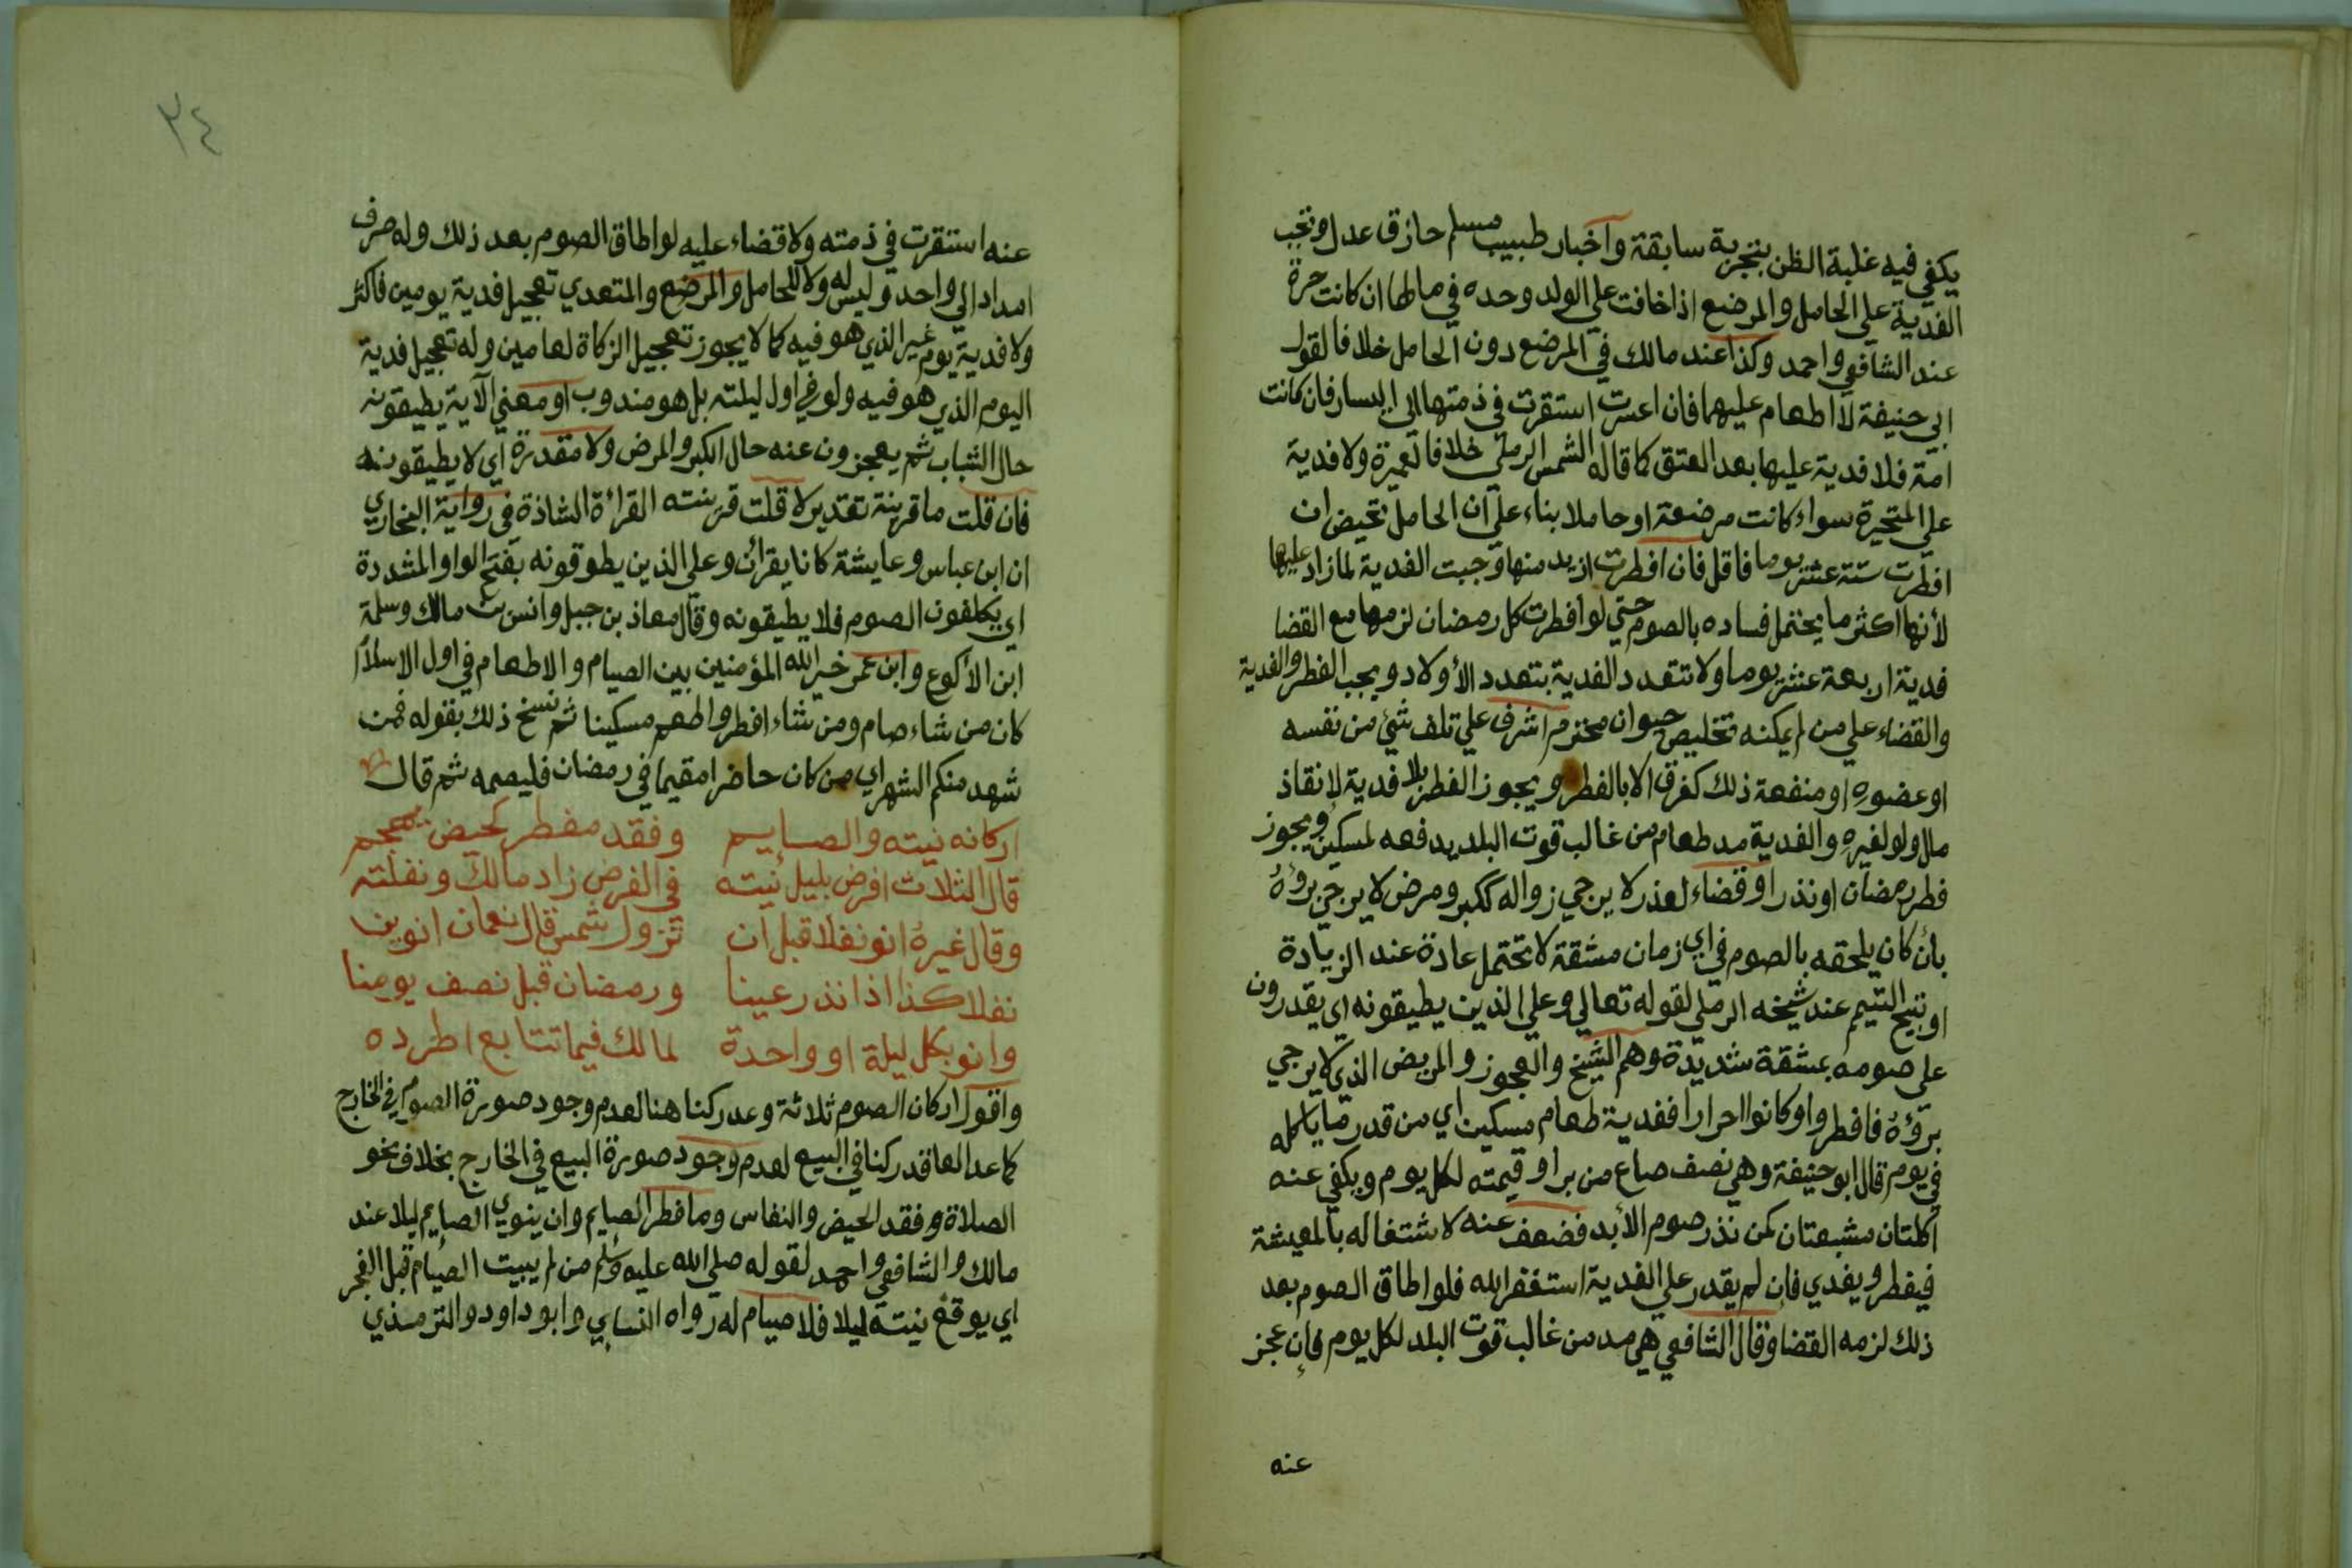 يكفي فيه غلبة الظن بتجربة سابقة واخبار طبيب مسلم حازق عدل وتجب
الفدية علي الحامل والمرضع اذا خافت علي الولد وحده في مالها ان كانت حرة
عند الشافعي واحمد وكذا عند مالك في المرضع دون الحامل خلافا لقول
ابي حنيفة لا اطعام عليهما فان اعسرت استقرت في ذمتها الي اليسار فان كانت
امة فلا فدية عليها بعد العتق كما قاله الشمس الرملي خلافا لعميرة ولا فدية
علي المتحيرة سواء كانت مرضعة او حاملا بناء علي ان الحامل تحيض ان
افطرت ستة عشر يوما فاقل فان افطرت ازيد منها وجبت الفدية لما زاد عليها
لأنها اكثر ما يحتمل فساده بالصوم حتي لو افطرت كل رمضان لزمها مع القضا
فدية اربعة عشر يوما ولا تتعدد الفدية بتعدد الأولاد ويجب الفطر والفدية
والقضاء علي من لم يمكنه تخليص حيوان محترم اشرف علي تلف شئ من نفسه
او عضوه او منفعة ذلك كغرق الا بالفطر ويجوز الفطر بلا فدية لانقاذ
مال ولو لغيره والفدية مد طعام من غالب قوت البلد يدفعه لمسكين ويجوز
فطر رمضان او نذر او قضاء لعذر لا يرجي زواله ككبر ومرض لا يرجي برؤه
بان كان يلحقه بالصوم في اي زمان مشقة لا تحتمل عادة عند الزيادة
او تبيح التيمم عند شيخه الرملي لقوله تعالي وعلي الذين يطيقونه اي يقدرون
على صومه بمشقة شديدة وهم الشيخ والعجوز والمريض الذي لا يرجي
برؤه فافطروا وكانوا احرارا ففدية طعام مسكين اي من قدر ما ياكله
في يوم قال ابو حنيفة وهي نصف صاع من بر او قيمته لكل يوم ويكفي عنه
اكلتان مشبعتان كمن نذر صوم الأبد فضعف عنه لاشتغاله بالمعيشة
فيفطر ويفدي فان لم يقدر علي الفدية استغفر الله فلو اطاق الصوم بعد
ذلك لزمه القضا وقال الشافعي هي مد من غالب قوت البلد لكل يوم فإن عجز
عنه
٣٤
عنه استقرت في ذمته ولا قضاء عليه لو اطاق الصوم بعد ذلك وله صرف
امداد الي واحد وليس له ولا للحامل والمرضع والمتعدي تعجيل فدية يومين فاكثر
ولا فدية يوم غير الذي هو فيه كما لا يجوز تعجيل الزكاة لعامين وله تعجيل فدية
اليوم الذي هو فيه ولو في اول ليلته بل هو مندوب او معني الآية يطيقونه
حال الشباب ثم يعجزون عنه حال الكبر والمرض ولا مقدرة اي لا يطيقونه
فان قلت ما قرينة تقدير لا قلت قرينته القرائة الشاذة في رواية البخاري
ان ابن عباس وعايشة كانا يقرآن وعلي الذين يطوقونه بفتح الواو المشددة
اي يكلفون الصوم فلا يطيقونه وقال معاذ بن جبل وانس بن مالك وسلمة
ابن الأكوع وابن عمر خير الله المؤمنين بين الصيام والاطعام في اول الاسلام
كان من شاء صام ومن شاء افطر واطعم مسكينا ثم نسخ ذلك بقوله فمن
شهد منكم الشهر اي من كان حاضرا مقيما في رمضان فليصمه ثم قال
اركانه نيته والصايم وفقد مفطر كحيض
قال الثلاث افرض بليل نيته في الفرض زاد مالك ونفلته
وقال غيره انو نفلا قبل ان تزول شمس قال نعمان انوين
نفلا كذا اذا نذر عينا ورمضان قبل نصف يومنا
وانو بكل ليلة او واحدة لمالك فيما تتابع اطرده
واقول اركان الصوم ثلاثة وعد ركنا هنا لعدم وجود صورة الصوم في الخارج
كما عد العاقد ركنا في البيع لعدم وجود صورة البيع في الخارج بخلاف نحو
الصلاة وفقد الحيض والنفاس وما فطر الصايم وان ينوي الصايم ليلا عند
مالك والشافعي واحمد لقوله صلي الله عليه وسلم من لم يبيت الصيام قبل الفجر
اي يوقع نيته ليلا فلا صيام له رواه النسايي وابو داود والترمذي